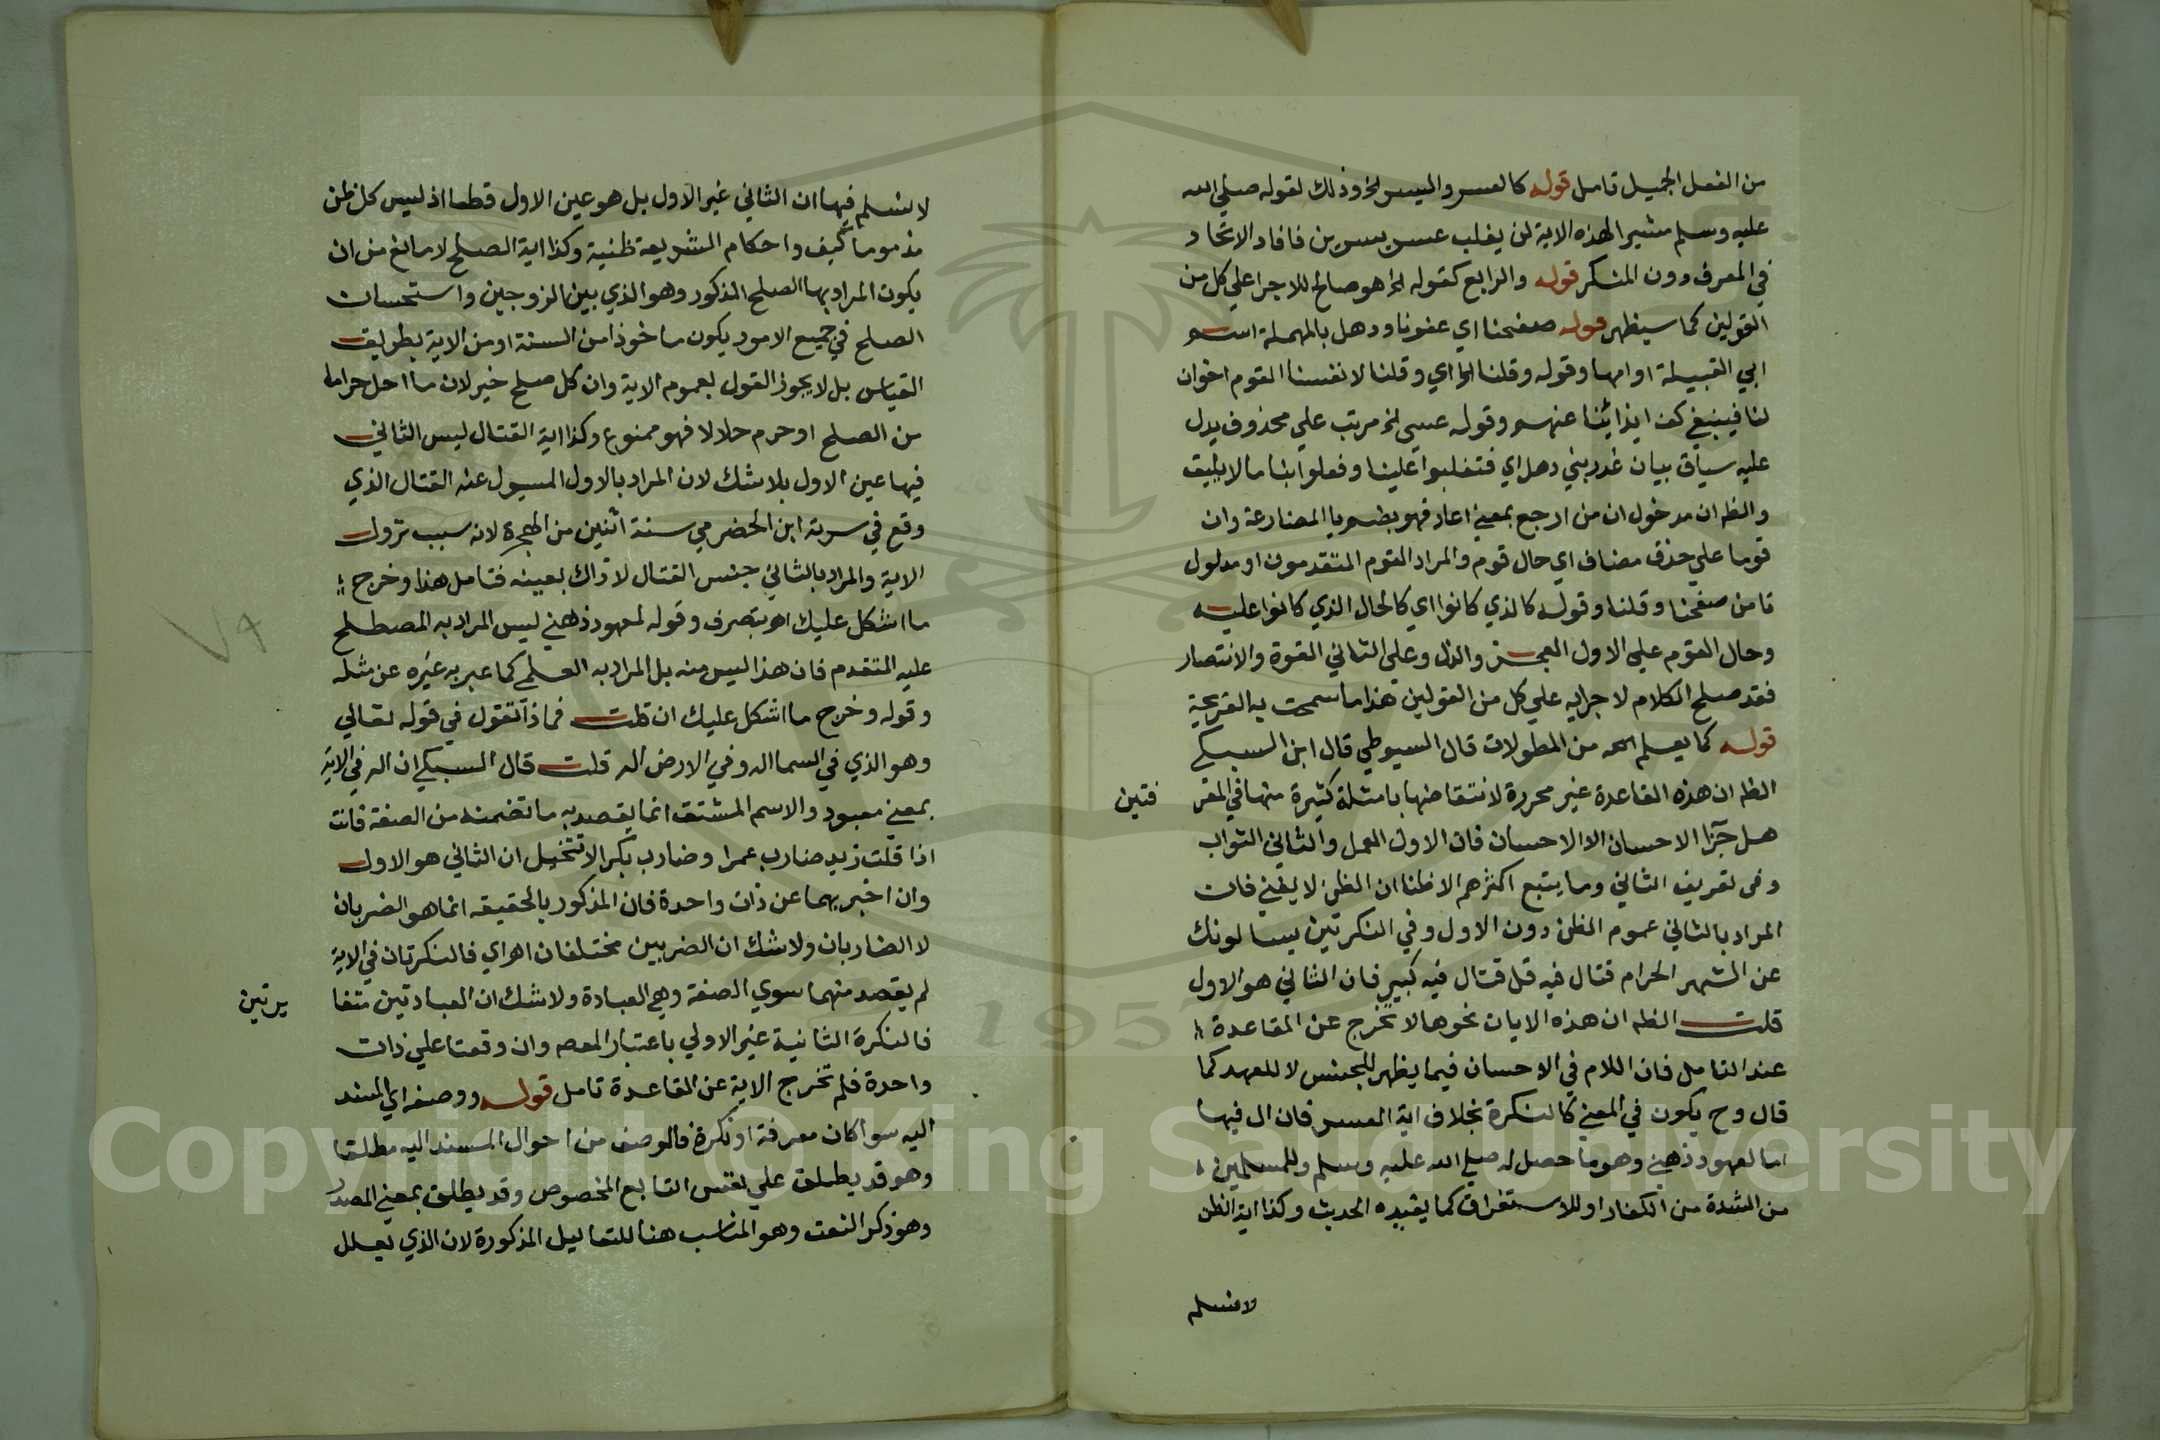 من الفعل الجميل تامل قوله كالعسر واليسر الخ وذلك لقوله صلي الله
عليه وسلم مشيرا لهذه الاية لن يغلب عسر يسرين فافاد الاتحاد
في المعرف دون المنكر قوله والرابع كقوله الخ هو صالح للاجرا علي كل من
القولين كما سيظهر قوله صفحنا اي عفونا وذهل بالمهملة اسم
ابي القبيلة او امها وقوله وقلنا الخ اي وقلنا لانفسنا القوم اخوان
لنا فينبغي كف ايذائنا عنهم وقوله عسي الخ مرتب علي محذوف يدل
عليه سياق بيان غدر بني دهل اي فتغلبوا علينا وفعلوا بنا ما لا يليق
والظه ان مدخول ان من ارجع بمعني اعاد فهو بضم يا المضارعة وان
قوما علي حذف مضاف اي حال قوم والمراد القوم المتقدمون او مدلول
نا من صفحنا وقلنا وقوله كالذي كانوا اي كالحال الذي كانوا عليه
وحال القوم علي الاول العجز والذل وعلي الثاني القوة والانتصار
فقد صلح الكلام لاجرايه علي كل من القولين هذا ما سمحت به القريحة
قوله كما يعلم الخ من المطولات قال السيوطي قال ابن السبكي
الظه ان هذه القاعدة غير محررة لانتقاضها بامثلة كثيرة منها في المعر
فتين
هل جزا الاحسان الا الاحسان فان الاول العمل والثاني الثواب
وفي تعريف الثاني وما يتبع اكثرهم الا ظنا ان الظن لا يغني فان
المراد بالثاني عموم الظن دون الاول وفي النكرتين يسالونك
عن الشهر الحرام قتال فيه قل قتال فيه كبير فان الثاني هو الاول
قلت الظه ان هذه الايات نحوها لا تخرج عن القاعدة
عند التامل فان اللام في الاحسان فيما يظهر للجنس لا للعهد كما
قال وح يكون في المعني كالنكرة بخلاف اية العسر فان ال فيها
اما لعهود ذهني وهو ما حصل له صلي الله عليه وسلم وللمسلمين
من الشدة من الكفار او للاستغراق كما يفيده الحديث وكذا اية الظن
لا نسلم
لا نسلم فيها ان الثاني غير الاول بل هو عين الاول قطعا اذ ليس كل ظن
مذموما كيف واحكام الشريعة ظنية وكذا اية الصلح لا مانع من ان
يكون المراد بها الصلح المذكور وهو الذي بين الزوجين واستحسان
الصلح في جميع الامور يكون ماخوذا من السنة او من الاية بطريق
القياس بل لا يجوز القول بعموم الاية وان كل صلح خير لان ما احل حراما
من الصلح او حرم حلالا فهو ممنوع وكذا اية القتال ليس الثاني
فيها عين الاول بلا شك لان المراد بالاول المسيول عنه القتال الذي
وقع في سرية ابن الحضرمي سنة اثنين من الهجرة لانه سبب نزول
الاية والمراد بالثاني جنس القتال لا ذاك بعينه فتامل هذا وخرج
ما اشكل عليك اهو بتصرف وقوله لمعهود ذهني ليس المراد به المصطلح
عليه المتقدم فان هذا ليس منه بل المراد به العلمي كما عبر به غيره عن مثله
وقوله وخرج ما اشكل عليك ان قلت فماذا تقول في قوله تعالي
وهو الذي في السما اله وفي الارض اله قلت قال السبكي ان اله في الاية
بمعني معبود والاسم المشتق انما يقصد به ما تضمنه من الصفة فانت
اذا قلت زيد ضارب عمرا وضارب بكرا لا تتخيل ان الثاني هو الاول
وان اخبر بهما عن ذات واحدة فان المذكور بالحقيقه انما هو الضربان
لا الضاربان ولا شك ان الضربين مختلفان اهو اي فالنكرتان في الاية
لم يقصد منهما سوي الصفة وهي العبادة ولا شك ان العبادتين متغا
يرتين
فالنكرة الثانية غير الاولي باعتبار المعه وان وقعتا علي ذات
واحدة فلم تخرج الاية عن القاعدة تامل قوله ووصفه اي المسند
اليه سوا كان معرفة او نكرة فالوصف من احوال المسند اليه مطلقا
وهو قد يطلق علي نفس التابع المخصوص وقد يطلق بمعني المصدر
وهو ذكر النعت وهو المناسب هنا للتعاليل المذكورة لان الذي يعلل
Copyright © King Saud University
1957